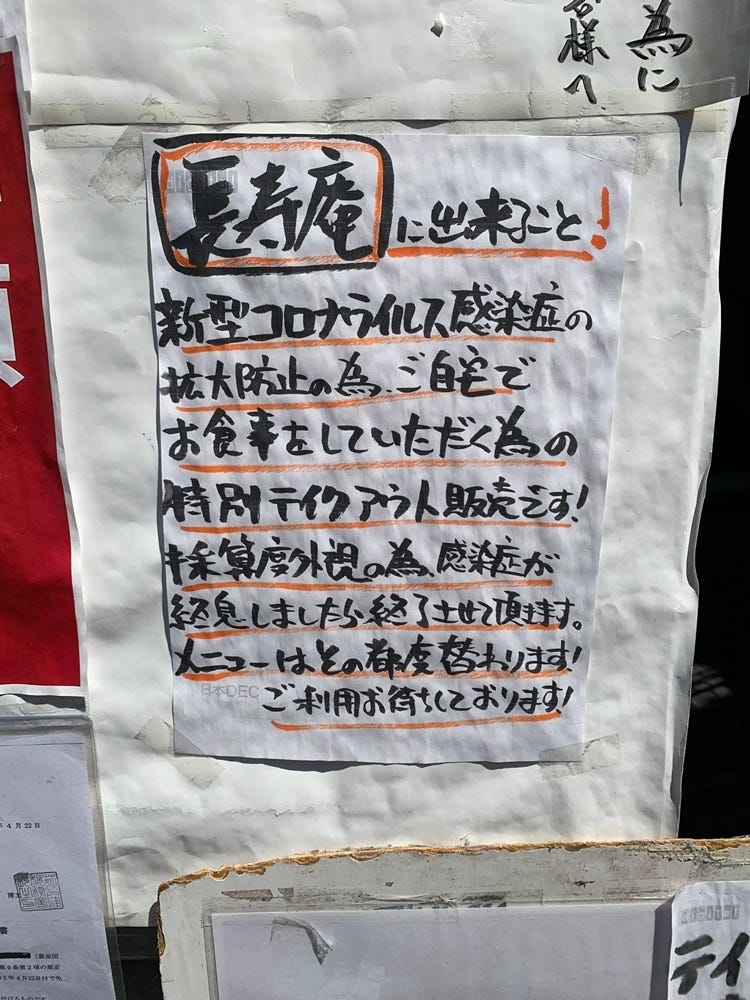 為に
客様へ
長寿庵に出来ること!
新型コロナウイルス感染症の
拡大防止の為、ご自宅で
お食事をしていただく為の
特別テイクアウト販売です!
採算度外視の為、感染症が
終息しましたら終了させて頂きます。
メニューはその都度替わります!
日本DEC
ご利用お待ちしております!
年4月22日
書
第9条第2項の規定
2年4月23日付で免
付けるものです
digital
テイ